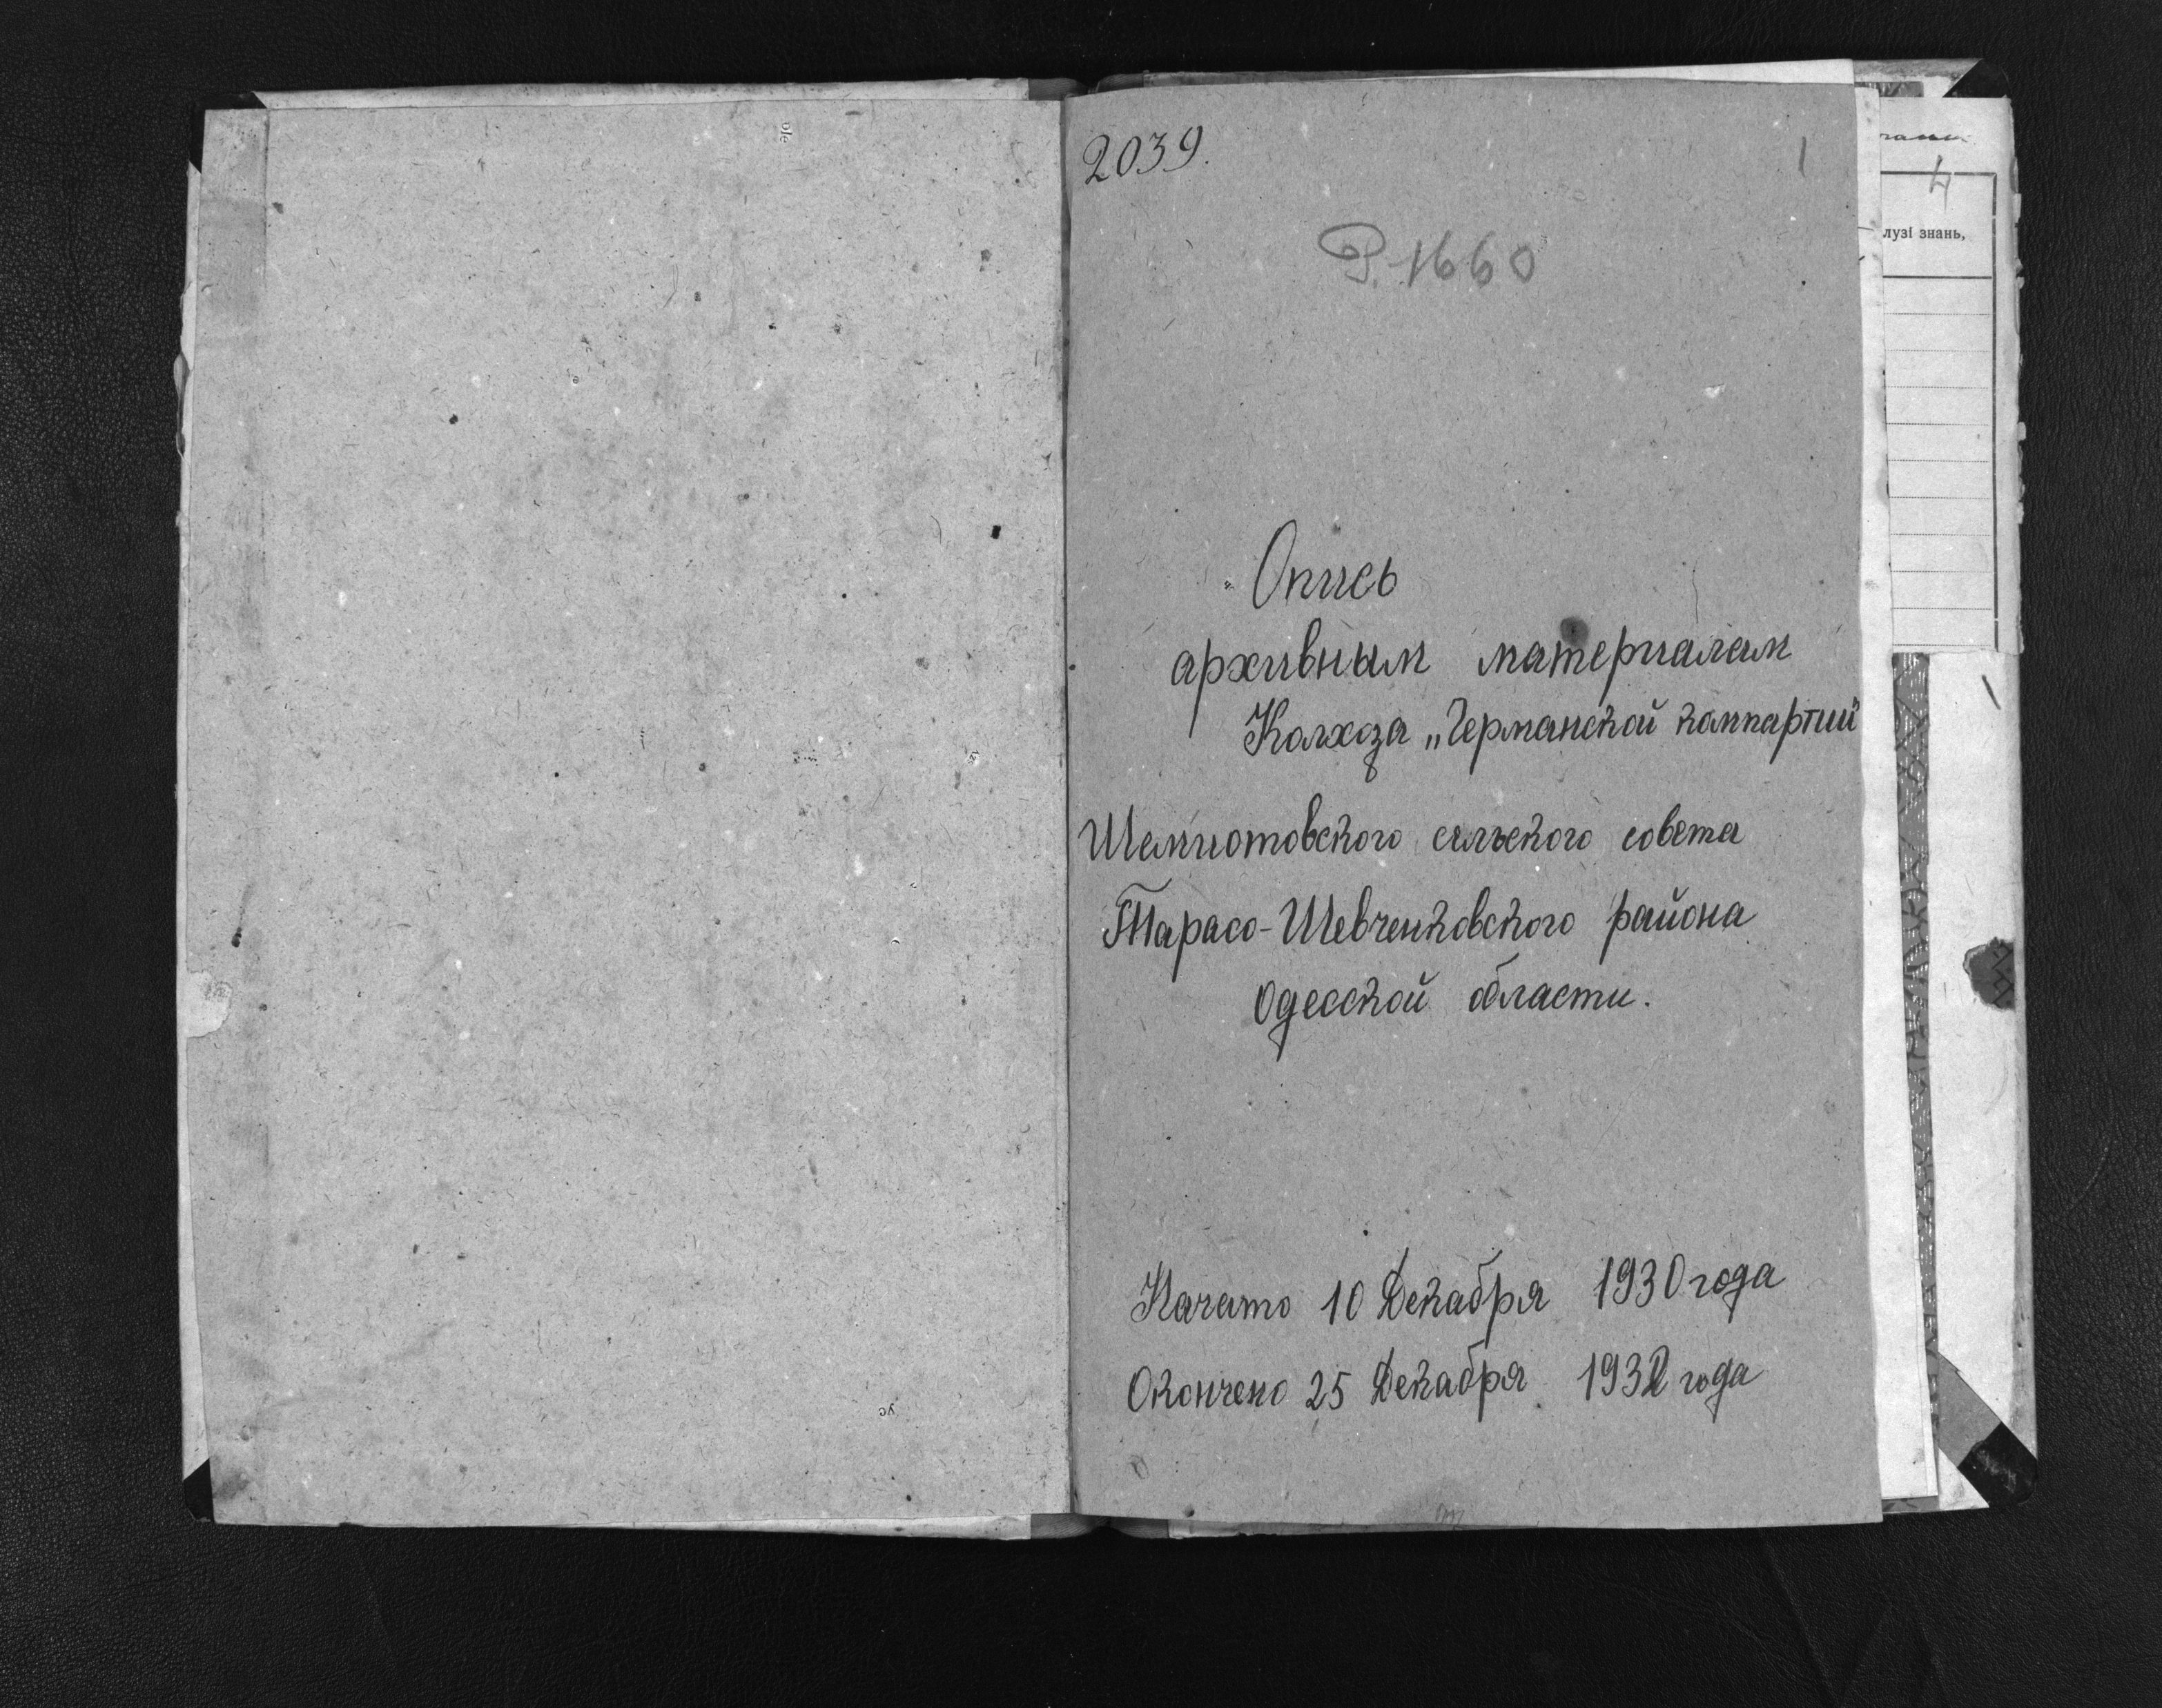 2039.
1
Р. 1660
Опись
архивным материалам
Колхоза „Германской компартии"
Шемиотовского сельского совета
Тарасо-Шевченковского района
Одесской области.
Начато 10 Декабря 1930 года
Окончено 25 Декабря 1932 года
4
лузі знань,